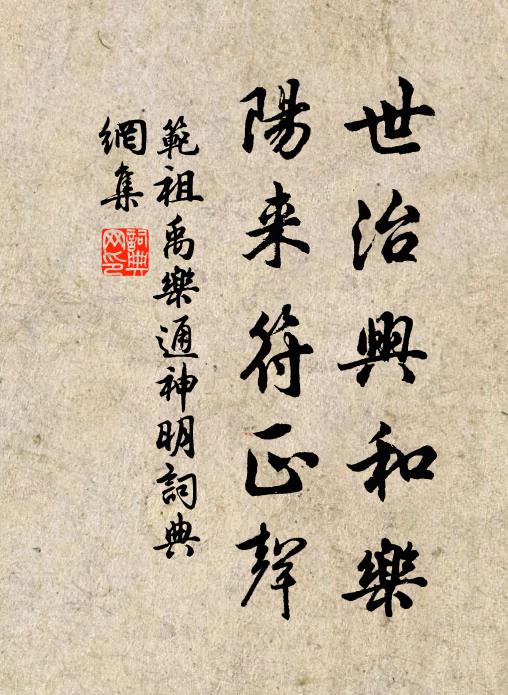 世治興和樂
陽来符正聲
範祖禹樂通神明詞典
網集
詞典
网印